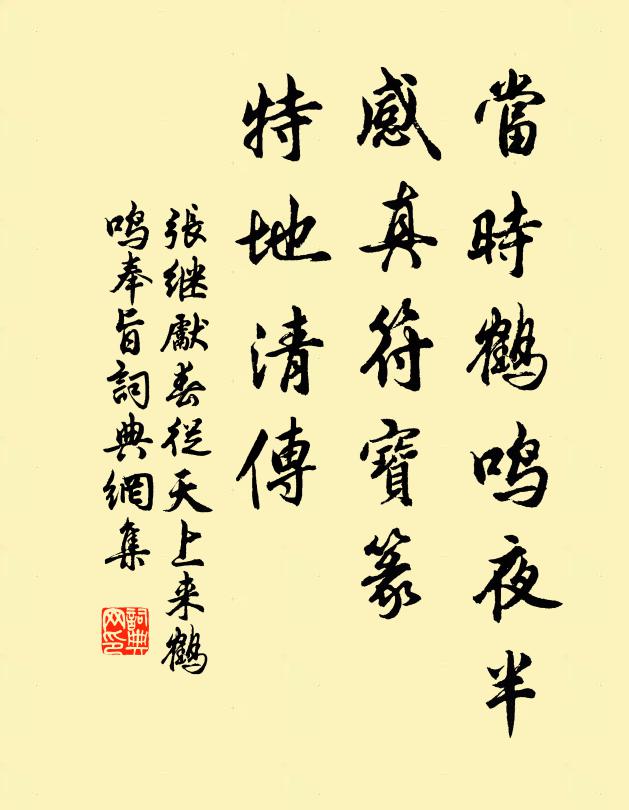 當時鶴鳴夜半
感真符寶篆
特地清傳
張継獻春從天上来鶴
鳴奉旨詞典網集
詞典
网印